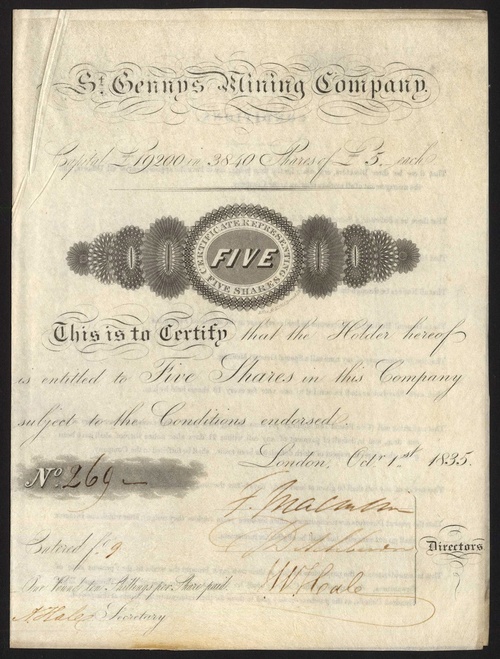 St. Gennys Mining Company.
Capital £19200 in 3840 Shares of £5. each
CERTIFICATE REPRESENTING
FIVE
FIVE SHARES
This is to Certify that the Holder hereof
is entitled to Five Shares in this Company
subject to the Conditions endorsed.
London, Octr. 1st 1835.
No. 269
Directors
W Hale
Entered f. 9
One Pound ten Shillings per Share paid.
Hale Secretary